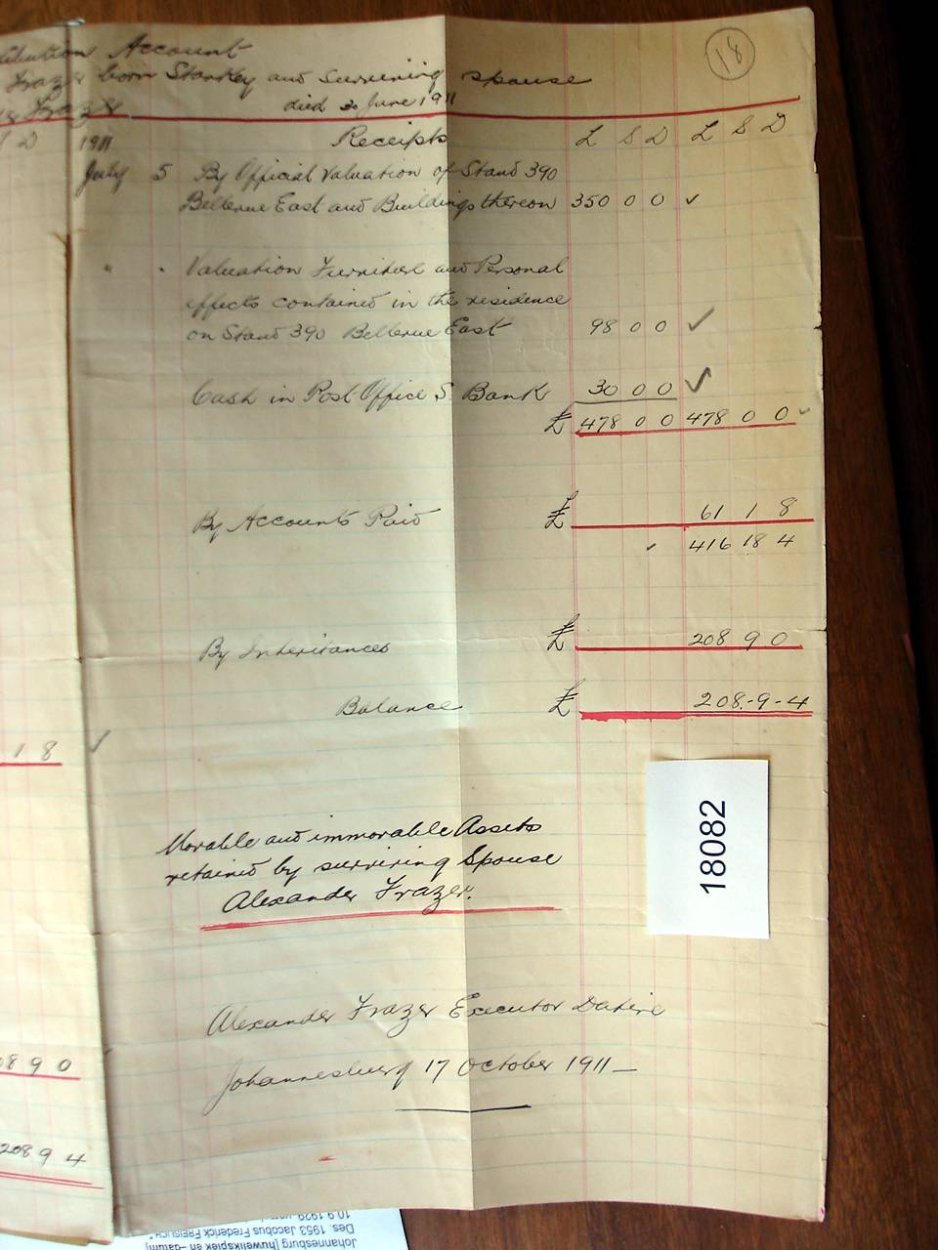 18
Account
Frazer born Stanley and Surviving spouse
Frazer died 30 June 1911
D 1911 Receipts £ S D £ S D
July 5 By Official Valuation of Stand 390
Bellevue East and Buildings thereon 350 0 0 ✓
" " Valuation Furniture and Personal
effects contained in the residence
on Stand 390 Bellevue East 98 0 0 ✓
Cash in Post Office S. Bank 30 0 0 ✓
£ 478 0 0 478 0 0 ✓
By Accounts Paid £ 61 1 8
✓ 416 18 4
By Inheritances £ 208 9 0
Balance £ 208.-9-4
1 8 ✓
Movable and immovable Assets
retained by surviving Spouse
Alexander Frazer.
18082
Alexander Frazer Executor Dative
Johannesburg 17 October 1911 —
8 9 0
208 9 4
Johannesburg [huweliksplek en -datum]
Des. 1953 Jacobus Frederick
10.9.1929